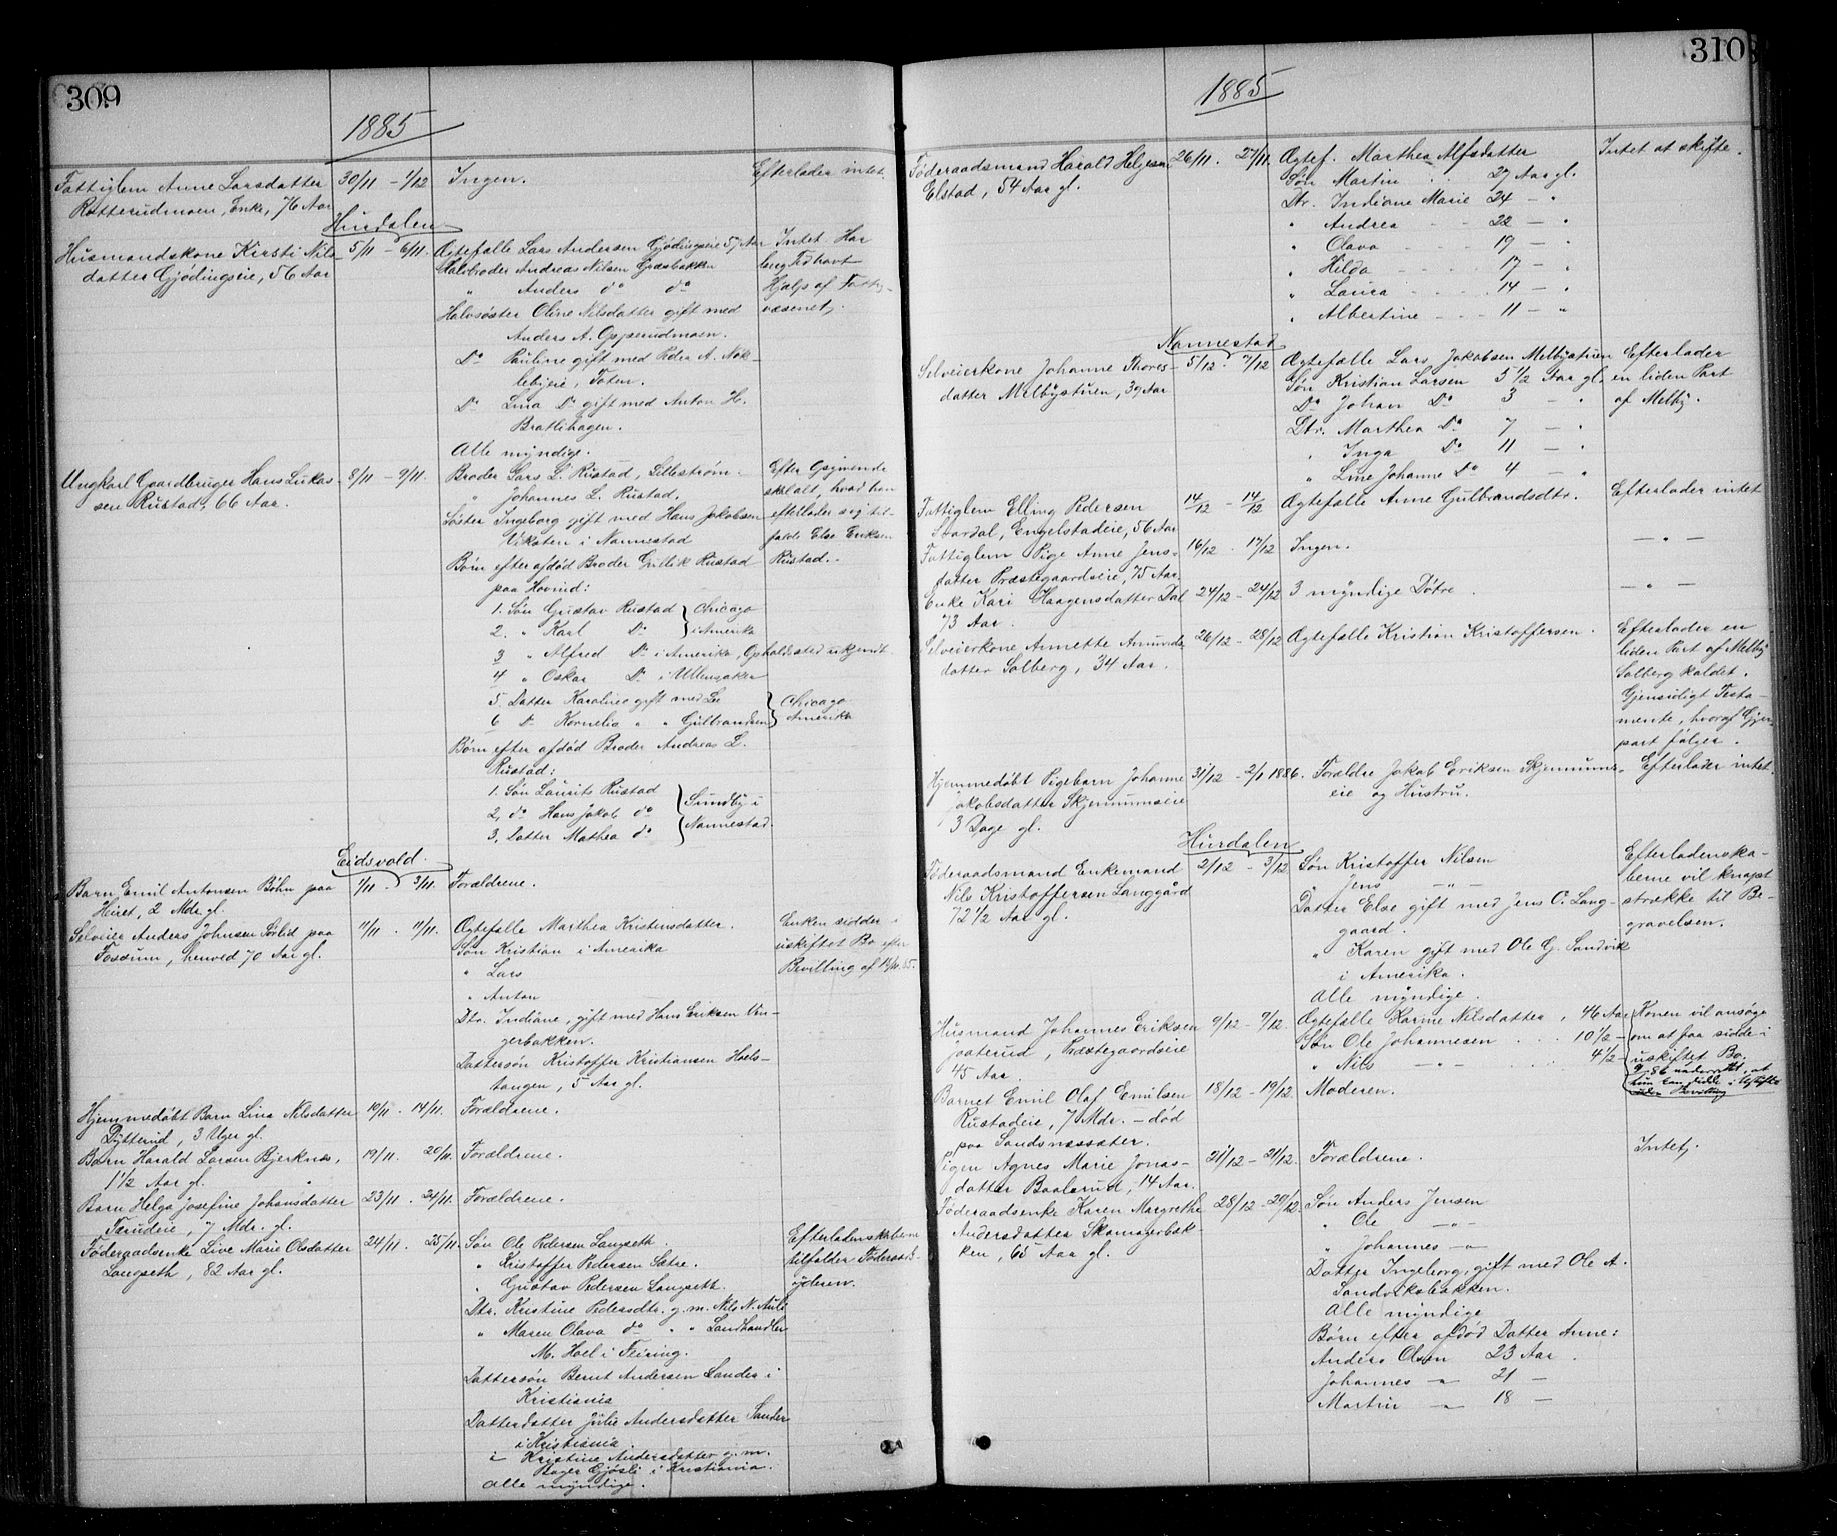 309
1885
Fattiglem Anne Larsdatter 30/11 – 1/12 Ingen. Efterlader intet.
Rotterudmoen, Enke, 76 Aar
Hurdalen
Husmandskone Kirsti Nils- 5/11 – 6/11. Ægtefælle Lars Andersen Gjødingseie 57 Aar Intet. Har
datter Gjødingseie, 56 Aar Halvbroder Andreas Nilsen Græsbakken lang Tid havt
" Anders do do Hjælp af Fattig-
Halvsøster Oline Nilsdatter gift med væsenet.
Anders A. Opperudmoen.
Do Pauline gift med Peder A. Nøk-
lebyeie, Toten.
Do Lina Do gift med Anton H.
Brattihagen.
Alle myndige.
Ungkarl Gaardbruger Hans Lukas- 8/11 – 9/11. Broder Lars L. Rustad, Lillestrøm. Efter Opgivende
sen Rustad, 66 Aar. " Johannes L. Rustad. skal alt, hvad han
Søster Ingeborg gift med Hans Jakobsen efterlader sig til-
i Nannestad falde Else Eriksen
Børn efter afdød Broder Gullik Rustad Rustad.
paa Hovind:
1. Søn Gustav Rustad } Chicago
2. " Karl Do } i Amerika
3 " Alfred Do i Amerika, Opholdssted ukjendt
4 " Oskar Do i Ullensaker
5. Datter Karoline gift med Lee } Chicago
6 Do Kornelia " " Gulbrandsen } Amerika
Børn efter afdød Broder Andreas L.
Rustad:
1. Søn Laurits Rustad
2. do Hans Jakob do } Sundby i
3. Datter Mathea do } Nannestad.
Eidsvold.
Barn Emil Antonsen Bøhn paa 1/11 . 3/11. Forældrene.
2 Mdr. gl.
Selveier Anders Johnsen Sørlid paa 11/11 . 11/11. Ægtefælle Marthea Kristensdatter. Enken sidder i
henved 70 Aar gl. Søn Kristian i Amerika uskiftet Bo efter
" Lars Bevilling af
" Anton
Dtr. Indiane, gift med Hans Eriksen Vin-
gerbakken.
Dattersøn Kristoffer Kristiansen Hols-
tangen, 5 Aar gl.
Hjemmedøbt Barn Lina Nilsdatter 10/11 . 14/11. Forældrene.
Dytterud, 3 Uger gl.
Barn Harald Larsen Bjerknæs, 19/11. 20/11. Forældrene.
1 1/2 Aar gl.
Barn Helga Josefine Johansdatter 23/11 . 24/11. Forældrene.
7 Mdr. gl.
Føderaadsenke Live Marie Olsdatter 24/11 . 25/11. Søn Ole Pedersen Langseth. Efterladenskaberne
Langseth, 82 Aar gl. " Kristoffer Pedersen Sætre. tilfalder Føderaads-
" Gustav Pedersen Langseth. yderen.
Dtr. Kristine Pedersdtr. g. m. Nils N. Aule
" Maren Olava do " " Landhandler
M. Hoel i Feiring.
Dattersøn Bernt Andersen Sander i
Kristiania
Datterdatter Julie Andersdatter Sander
i Kristiania.
Kristine Andersdatter g. m.
Bager Gjøsli i Kristiania.
Alle myndige.
310
1885
Føderaadsmand Harald Helgesen 26/11. 27/11. Ægtef. Marthea Alfsdatter Intet at skifte.
Elstad, 54 Aar gl. Søn Martin 27 Aar gl.
Dtr. Indiane Marie 24 – "
" Andrea 22 – "
" Olava 19 – "
" Hilda 17 – "
" Laura 14 – "
" Albertine 11 – "
Nannestad
Selveierkone Johanne Thores- 5/12 . 7/12 Ægtefælle Lars Jakobsen Melbystuen Efterlader
datter Melbystuen, 39 Aar Søn Kristian Larsen 5 1/2 Aar gl. en liden Part
Do Johan Do 3 – " af Melby.
Dtr. Marthea Do 7 – "
" Inga Do 11 – "
" Line Johanne Do 4 – "
Fattiglem Elling Pedersen 14/12 – 14/12 Ægtefælle Anne Gulbrandsdtr. Efterlader intet
Engelstadeie, 56 Aar
Fattiglem Pige Anne Jens- 16/12 . 17/12 Ingen. – " –
datter Præstegaardseie, 75 Aar.
Enke Kari Haagensdatter Dal 24/12 – 24/12 3 myndige Døtre. – " –
73 Aar.
Selveierkone Annette Amunds- 26/12 – 28/12 Ægtefælle Kristian Kristoffersen. Efterlader en
datter Solberg, 34 Aar. liden Part af Melby
Solberg kaldet.
Gjensidigt Testa-
mente, hvoraf Gjen-
part følger.
Hjemmedøbt Pigebarn Johanne 31/12 – 2/1 1886. Forældre Jakob Eriksen Skjennums- Efterlader intet.
Jakobsdatter Skjennumseie eie og Hustru.
3 Dage gl.
Hurdalen
Føderaadsmand Enkemand 2/12 – 3/12. Søn Kristoffer Nilsen Efterladenska-
Nils Kristoffersen Langgård " Jens – " – berne vil knapt
72 1/2 Aar gl. Datter Else gift med Jens C. Lang- strække til Be-
gaard. gravelsen.
" Karen gift med Ole G. Sandvik
i Amerika.
Alle myndige.
Husmand Johannes Eriksen 9/12 – 9/12. Ægtefælle Karine Nilsdatter, 46 Aar Konen vil ansøge
Joaterud, Præstegaardseie Søn Ole Johannesen . . . 10 1/2 – om at faa sidde i
45 Aar " Nils – " – . . 4 1/2 – uskiftet Bo.
underrettet, at
hun kan sidde i uskiftet
uden Bevilling
Barnet Emil Olaf Emilsen 18/12 – 19/12. Moderen.
Rustadeie, 7 Mdr. – død
paa Sandsnessæter.
Pigen Agnes Marie Jonas- 21/12 – 21/12. Forældrene. Intet.
datter Baalsrud, 14 Aar.
Føderaadsenke Karen Margrethe 28/12 – 29/12. Søn Anders Jensen
Andersdatter Skomagerbak- " Ole – " –
ken, 65 Aar gl. " Johannes – " –
Datter Ingeborg, gift med Ole A.
Sandviksbakken.
Alle myndige
Børn efter afdød Datter Anne:
Anders Olsen 23 Aar.
Johannes – " – 21 –
Martin – " – 18 –